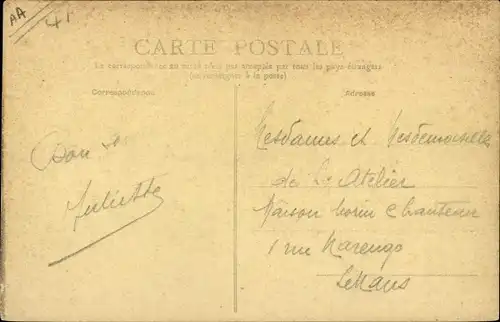 AA
41
CARTE POSTALE
La correspondance au recto n'est pas acceptée par tous les pays étrangers
(se renseigner à la poste)
Correspondance
Adresse
Bon
Juliette
Mesdames et Mesdemoiselles
de L'Atelier
Maison Morin Chanteau
1 rue Marengo
Le Mans